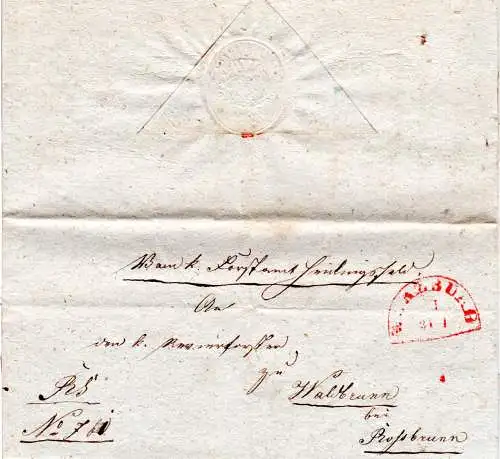 Vom k. Forstamt Heidingsfeld.
An
den k. Revierförster
zu
Waldbrunn
bei
Roßbrunn
RS
No 761
WÜRZBURG
1